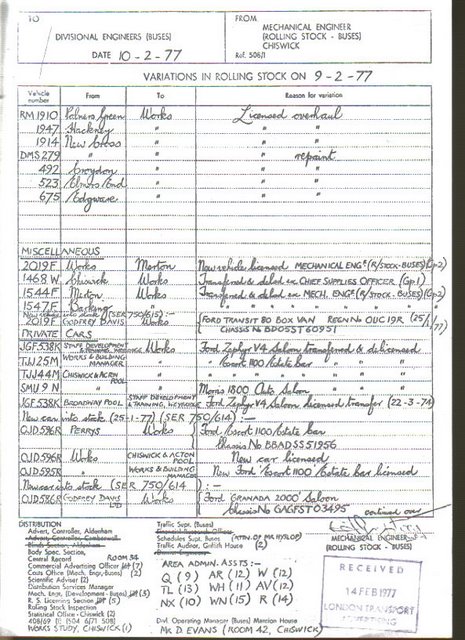 TO
FROM
DIVISIONAL ENGINEERS (BUSES)
MECHANICAL ENGINEER
(ROLLING STOCK - BUSES)
CHISWICK
DATE 10-2-77
Ref. 506/1
VARIATIONS IN ROLLING STOCK ON 9-2-77
Vehicle number From To Reason for variation
RM 1910 Palmers Green Works Licensed overhaul
1947 Hackney " " "
1914 New Cross " " "
DMS 279 " " " repaint
492 Croydon " " "
523 Elmers End " " "
675 Edgware " " "
MISCELLANEOUS
2019F Works Merton New vehicle licensed MECHANICAL ENGR (R/STOCK-BUSES) (Gp 2)
1468W Chiswick Works Transferred & delicd ex CHIEF SUPPLIES OFFICER (Gp 1)
1544F Merton " Transferred & delicd ex MECH. ENGR (R/STOCK-BUSES) (Gp 2)
1547F Barking " " " " " "
New vehicle into stock (SER 750/615) :-
2019F GODFREY DAVIS Works FORD TRANSIT 80 BOX VAN REGN No OUC 19R (25/1/77)
CHASSIS No BD05ST60951
PRIVATE CARS
JGF 538K STAFF DEVELOPMENT & TRAINING, Works Ford Zephyr V4 Saloon transferred & delicensed
TJJ 25M WORKS & BUILDING MANAGER " " Escort 1100 Estate car " "
TJJ 44M CHISWICK & ACTON POOL " " " " " "
SMU 9 N " " Morris 1800 Auto Saloon " "
JGF 538K BROADWAY POOL STAFF DEVELOPMENT & TRAINING, Ford Zephyr V4 Saloon licensed transfer (22-3-74)
New car into stock (25-1-77) (SER 750/614) :-
OJD 596R PERRYS Works Ford Escort 1100 Estate car
Chassis No BBADSS51956
OJD 596R Works CHISWICK & ACTON POOL New car licensed
OJD 595R " WORKS & BUILDING MANAGER New Ford Escort 1100 Estate car licensed
New car into stock (SER 750/614) :-
OJD 586R GODFREY DAVIS LTD Works Ford GRANADA 2000 Saloon
CHASSIS No GAGFST03495
continued over
DISTRIBUTION
Advert. Controller, Aldenham
Body Spec. Section,
Central Record ROOM 34
Commercial Advertising Officer (7)
Costs Office (Mech. Engr.-Buses) (2)
Scientific Adviser (2)
Distribution Services Manager
Mech. Engr. (Development-Buses) (3)
R. S. Licensing Section (5)
Rolling Stock Inspection
Statistical Office-Chiswick (2)
408/69 (E 1504 6/71 50B)
WORKS STUDY, CHISWICK (1)
Traffic Supt. (Buses)
Schedules Supt. Buses (ATTN. OF MR HYSLOP)
Traffic Auditor, Griffith House (2)
AREA ADMIN. ASSTS :-
Q (9) AR (12) W (12)
TL (13) WH (11) AV (12)
NX (10) WN (15) R (14)
Divl. Operating Manager (Buses) Mansion House
Mr D. EVANS (ROOM 42, CHISWICK)
MECHANICAL ENGINEER
(ROLLING STOCK - BUSES)
RECEIVED
14 FEB 1977
LONDON TRANSPORT
ADVERTISING